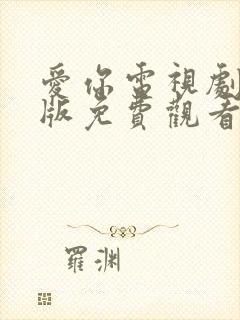 愛你電視劇
版免費觀看
羅渊